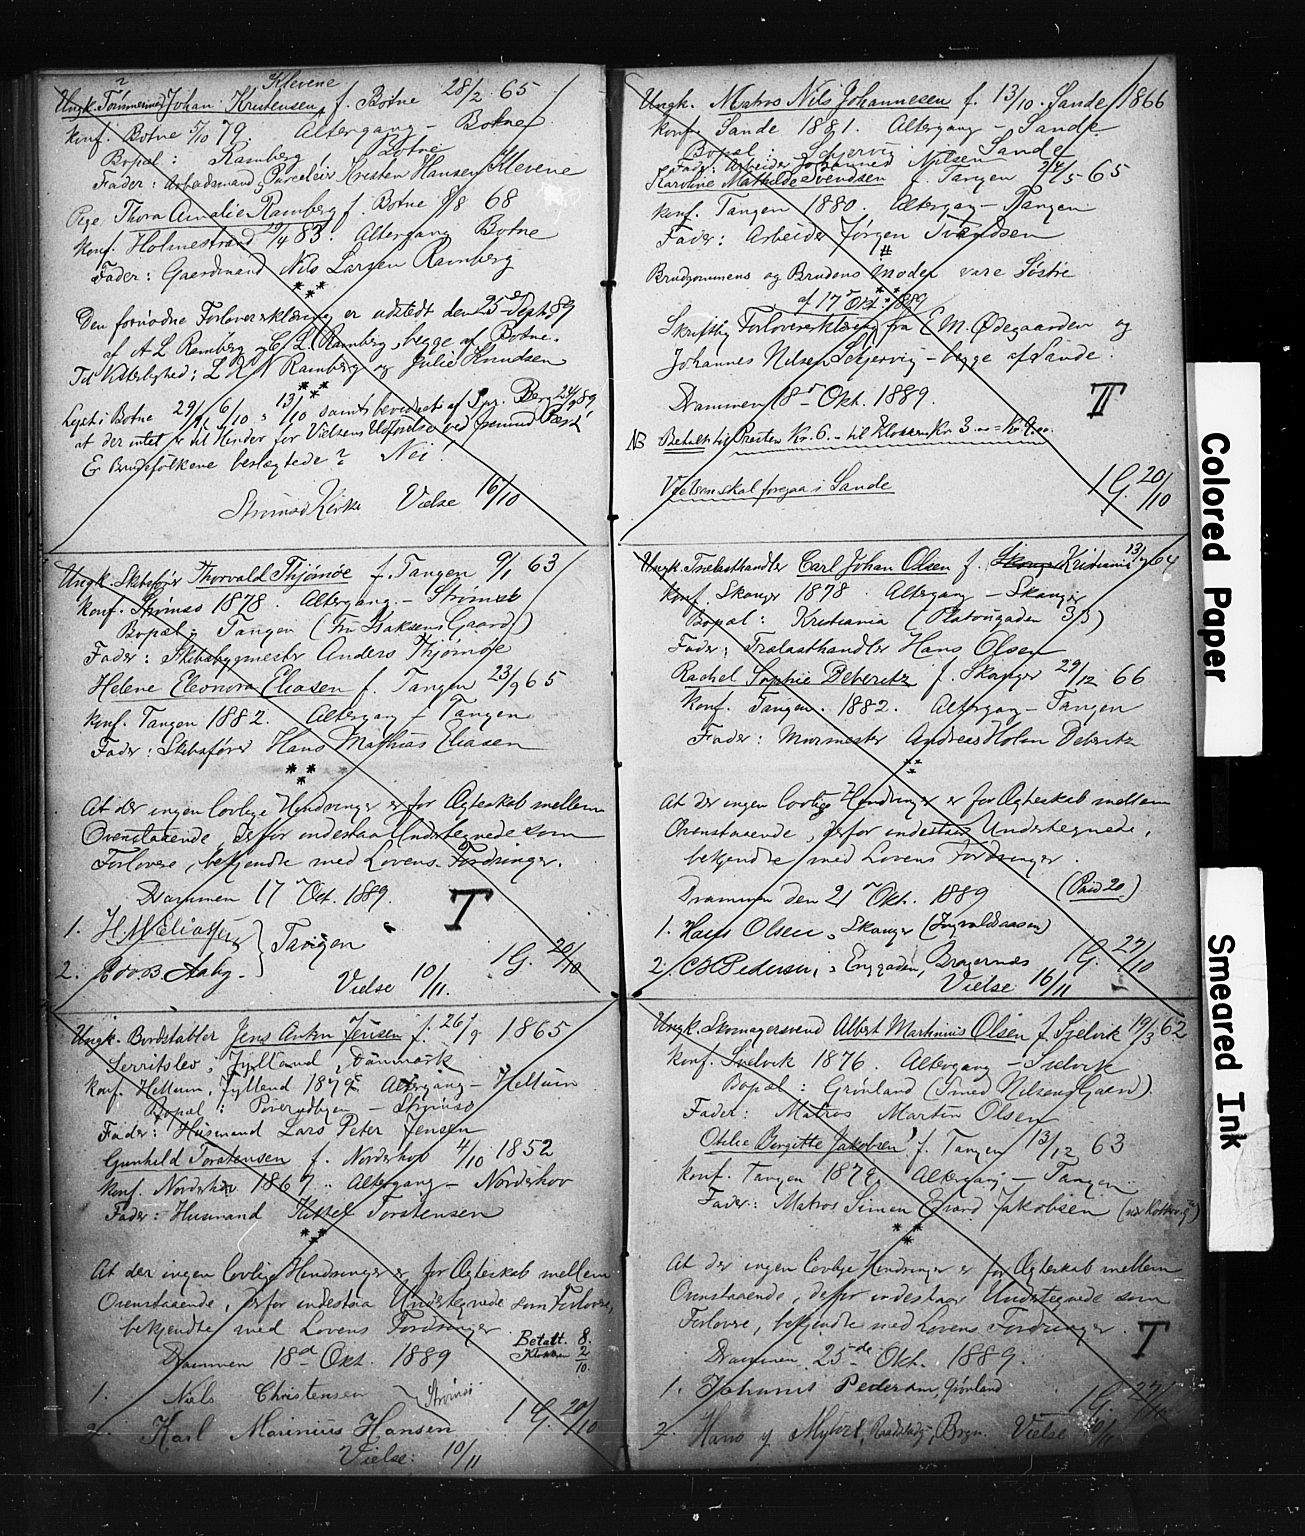 Klevene
Ungk. Tømmermd Johan Kristensen f. Botne 28/2 65
Konf. Botne 5/10 79. Altergang – Botne
Bopæl: Ramberg, Botne
Fader: Arbeidsmand, Parceleier Kristen Hansen Klevene
Pige Thora Amalie Ramberg f. Botne 8/8 68
Konf. Holmestrand 29/4 83. Altergang Botne
Fader: Gaardmand Nils Larsen Ramberg
Den fornødne Forloverserklæring er udstedt den 25de Sept. 89
af A L Ramberg og C. L. Ramberg, begge af Botne.
Til Vitterlighed: L R N Ramberg og Julie Knudsen
Lyst i Botne 29/9, 6/10 & 13/10 samt bevidnet af Spr. Berg 24/9 89
at der intet er til Hinder for Vielsens Udførelse ved fremmed Præst
Er Brudefolkene beslægtede? Nei!
Strømsø Kirke Vielse 16/10
Ungk. Skibsfører Thorvald Thjømøe f. Tangen 9/1 63
Konf. Strømsø 1878. Altergang – Strømsø
Bopæl: Tangen (Fru Isaksens Gaard)
Fader: Skibsbygmester Anders Thjømøe
Helene Eleonora Eliasen f. Tangen 23/9 65
Konf. Tangen 1882. Altergang – Tangen
Fader: Skibsfører Hans Mathias Eliasen
At der ingen lovlige Hindringer er for Ægteskab mellem
Ovenstaaende, derfor indestaa Undertegnede som
Forlovere, bekjendte med Lovens Fordringer.
Drammen 17 Oct. 1889. T
1. H M Eliassen } Tangen
2. Aaby 1 G. 20/10
Vielse 10/11.
Ungk. Bordstabler Jens Anton Jensen f. 26/9 1865
Serritslev, Jylland, Danmark
Konf. Hellum, Jylland 1879. Altergang – Hellum
Bopæl: Poverudbyen – Strømsø
Fader: Husmand Lars Peter Jensen
Gunhild Torstensen f. Norderhov 4/10 1852
Konf. Norderhov 1867. Altergang – Norderhov
Fader: Husmand Kittel Torstensen
At der ingen lovlige Hindringer er for Ægteskab mellem
Ovenstaaende, derfor indestaa Undertegnede som Forlovere,
bekjendte med Lovens Fordringer
Betalt. 8.
Klokker 2
10.
Drammen 18de Okt. 1889
1. Niels Christensen } Strømsø
2. Karl Marinius Hansen 1 G. 20/10
Vielse: 10/11
Ungk. Matros Nils Johannesen f. 13/10. Sande 1866
Konf. Sande 1881. Altergang – Sande
Bopæl: Selvig, Sande
Fader: Arbeider Johannes Nilsen
Karoline Mathilde Svendsen f. Tangen 24/5 65
Konf. Tangen 1880. Altergang – Tangen
Fader: Arbeider Jørgen Svendsen
Brudgommens og Brudens Moder vare Søstre
af 17de Okt. 1889
Skriftlig Forloverserklæring fra E M. Ødegaarden og
Johannes Nilsen Selvig – begge af Sande.
Drammen 18de Okt. 1889. T
NB Betalt til Presten Kr. 6. – til Klokker Kr. 3.– = Kr. 9.00
Vielsen skal foregaa i Sande
1 G. 20/10
Ungk. Trælasthandler Carl Johan Olsen f. Kristiania 13/7 64
Konf. Skanger 1878. Altergang – Skanger
Bopæl: Kristiania (Platousgaden 33)
Fader: Trælasthandler Hans Olsen
Rachel Sophie Deberitz f. Skanger 29/12 66
Konf. Tangen. 1882. Altergang – Tangen
Fader: Murmester Andreas Holm Deberitz
At der ingen lovlige Hindringer er for Ægteskab mellem
Ovenstaaende, derfor indestaar Undertegnede,
bekjendte med Lovens Fordringer.
Drammen den 21 Okt. 1889 (Præd 20)
1. Hans Olsen, Skanger (Ingvaldsaasen)
2. C H Pedersen, Enggaden, Bragernæs 1 G. 27/10
Vielse 16/11
Ungk. Skomagersvend Albert Martinius Olsen f. Svelvik 19/3 62
Konf. Svelvik 1876. Altergang – Svelvik
Bopæl: Grønland (Smed Nilsens Gaard).
Fader: Matros Martin Olsen
Othilie Birgitte Jakobsen f. Tangen 13/12 63
Konf. Tangen 1879. Altergang – Tangen.
Fader: Matros Simen Edvard Jakobsen
At der ingen lovlige Hindringer er for Ægteskab mellem
Ovenstaaende, derfor indestaar Undertegnede som
Forlovere, bekjendte med Lovens Fordringer. T
Drammen 25de Okt. 1889.
1. Johannes Pedersen, Grønland
2. Hans Myhre, Brgn. Vielse 10/11
1 G. 27/10
Colored Paper
Smeared Ink